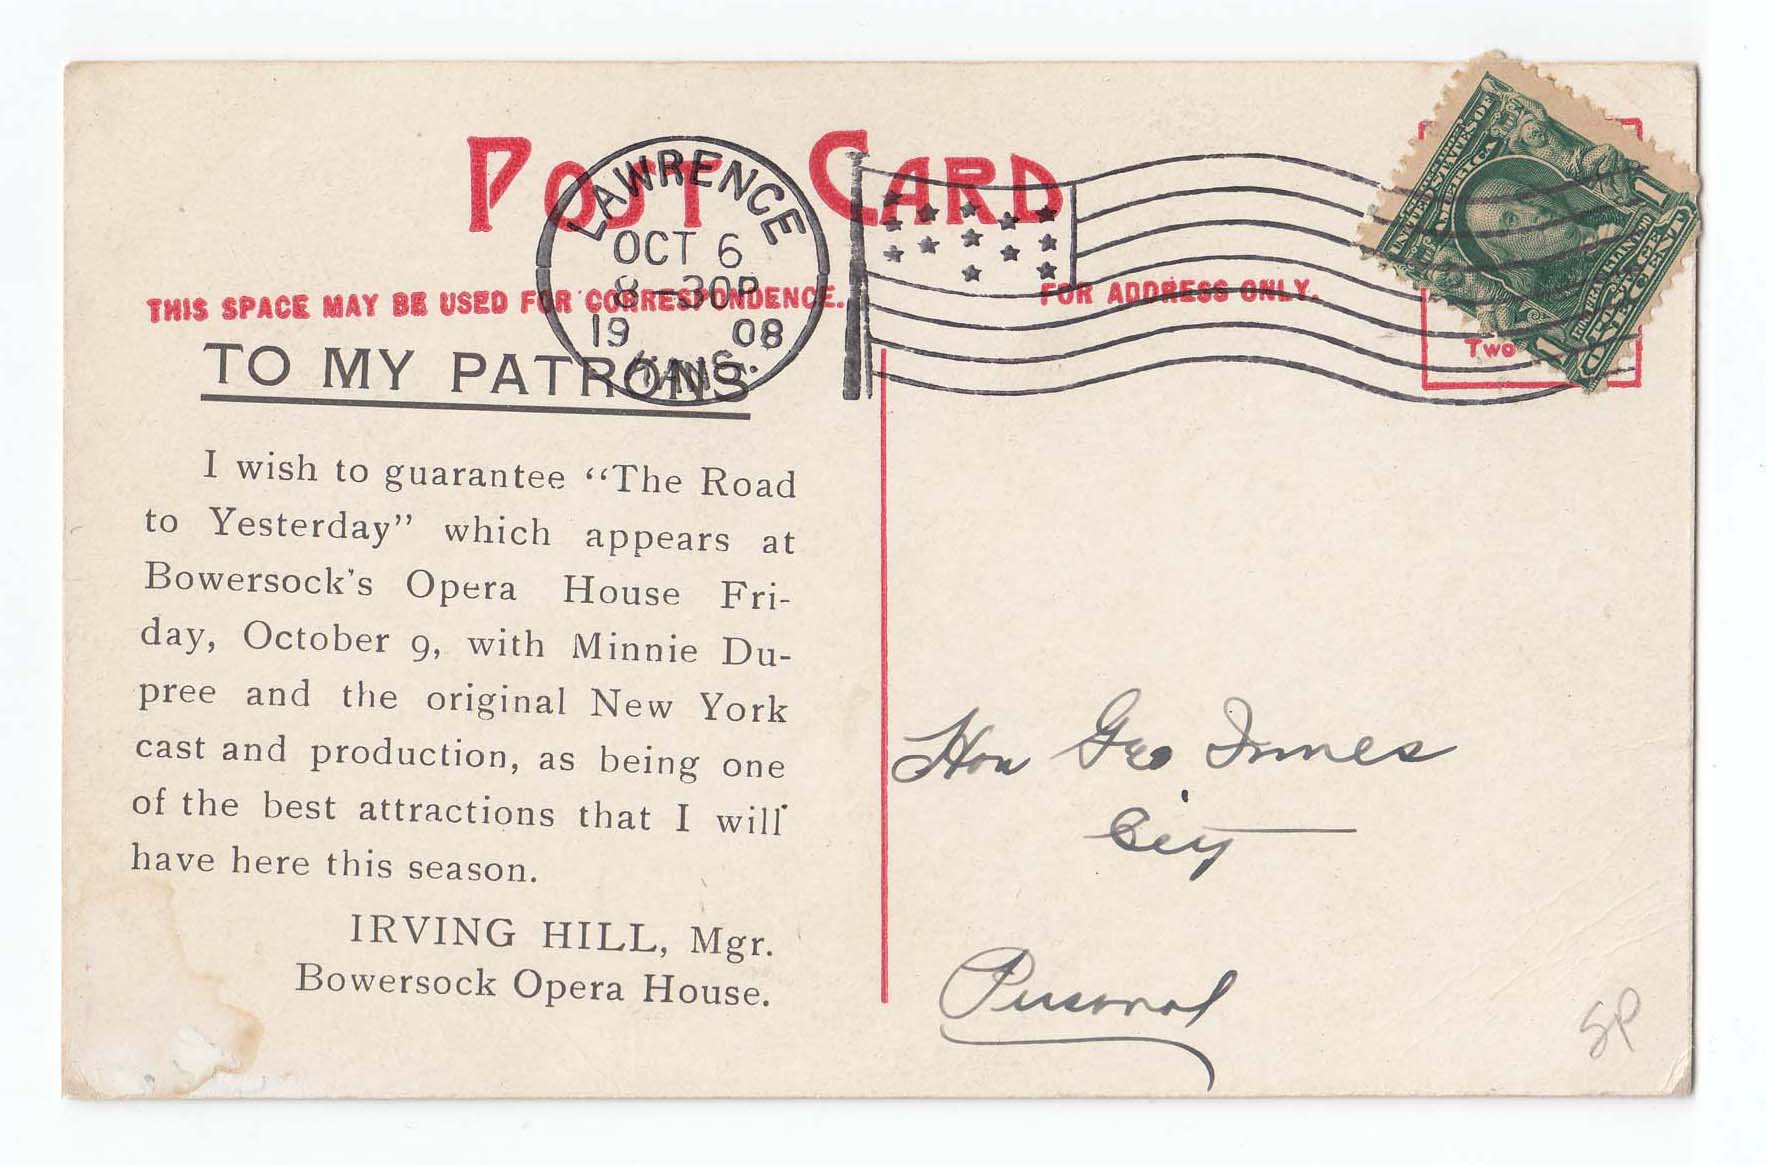 POST CARD
LAWRENCE
OCT 6
8-30P
19 08
KANS.
THIS SPACE MAY BE USED FOR CORRESPONDENCE.
FOR ADDRESS ONLY.
UNITED STATES OF
AMERICA
FRANKLIN
1 ONE CENT 1
Two
TO MY PATRONS
I wish to guarantee “The Road
to Yesterday” which appears at
Bowersock's Opera House Fri-
day, October 9, with Minnie Du-
pree and the original New York
cast and production, as being one
of the best attractions that I will
have here this season.
IRVING HILL, Mgr.
Bowersock Opera House.
Hon Geo Innes
City
Personal
SP